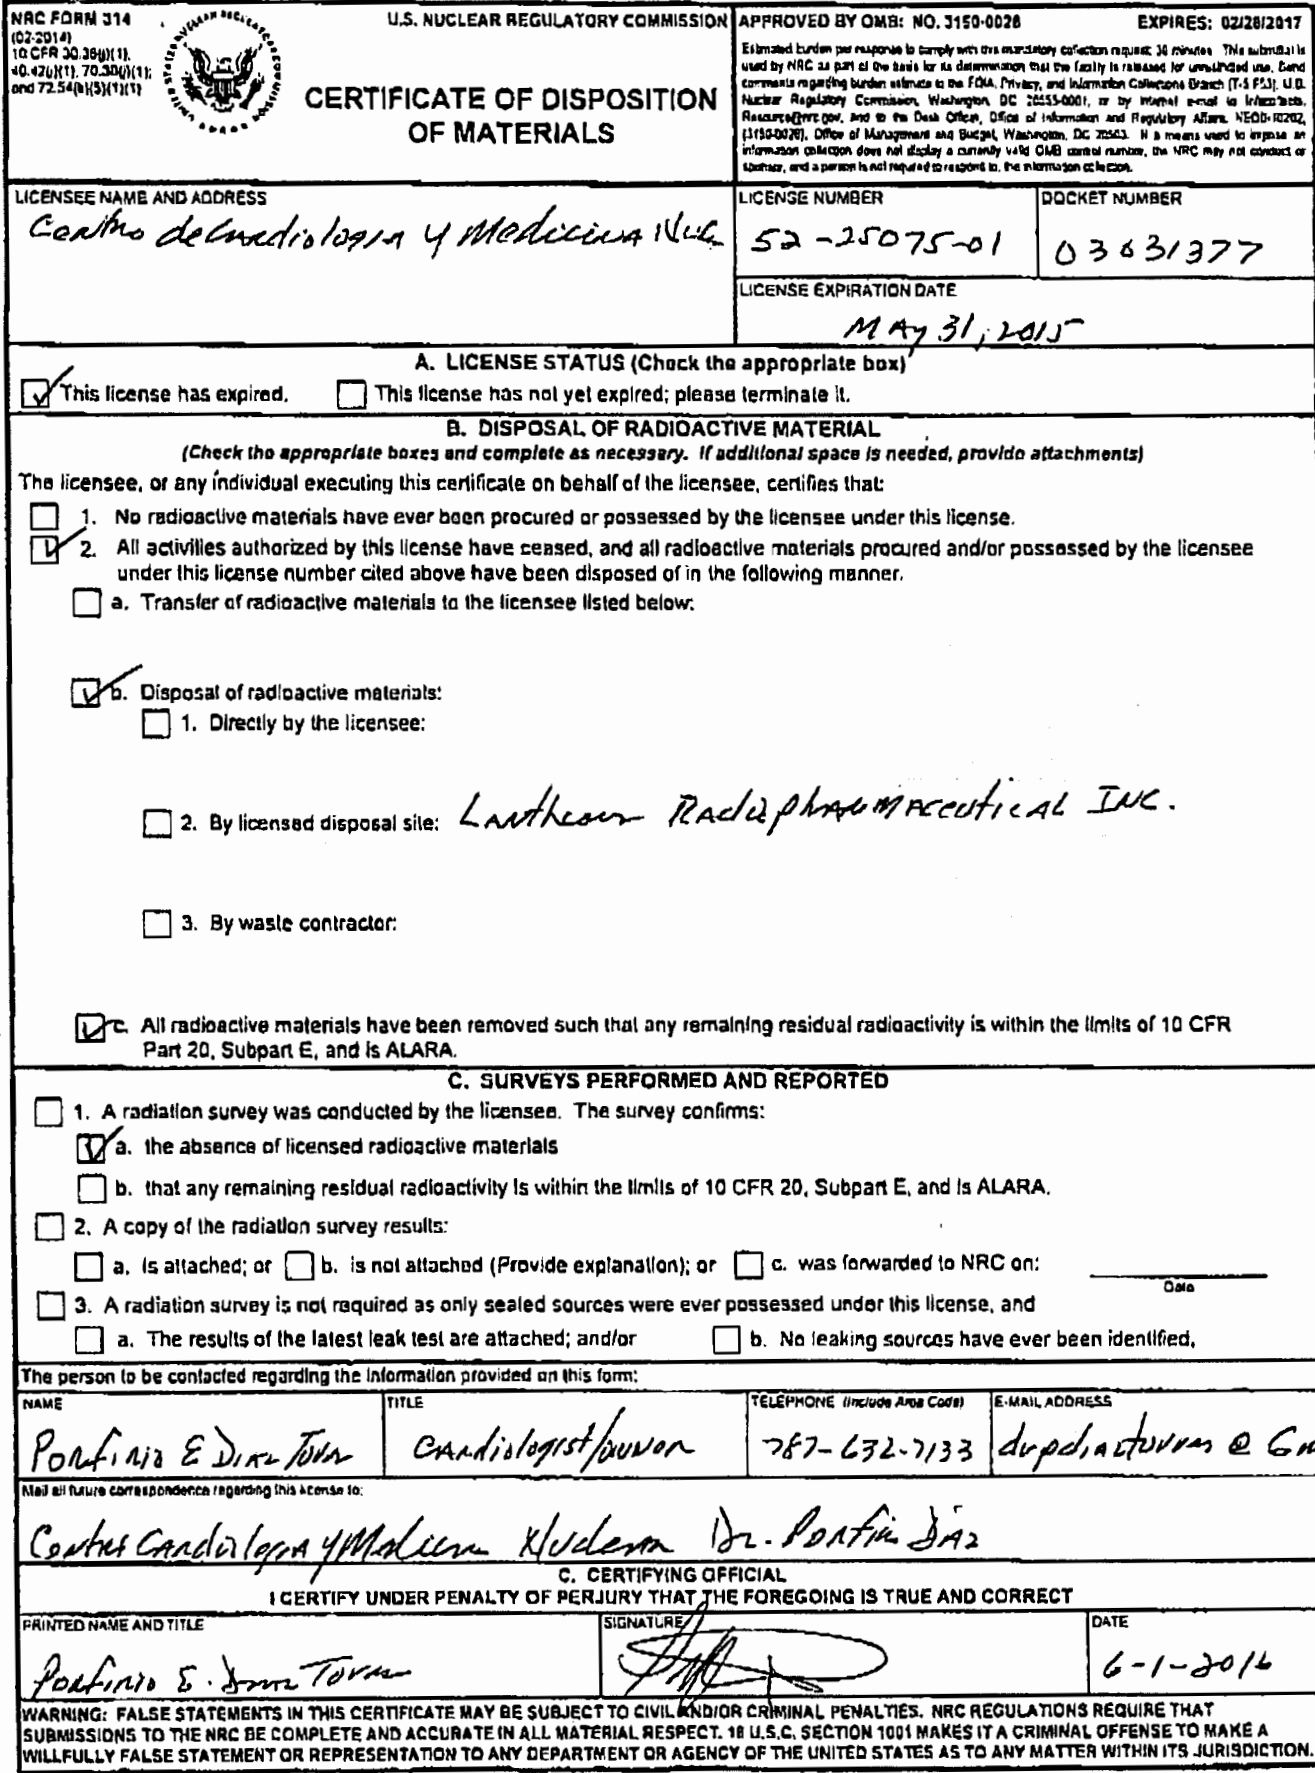 NRC FORM 314
(02-2014)
10 CFR 30.36(j)(1),
40.42(j)(1), 70.38(j)(1);
and 72.54(k)(5)(1)(1)
U.S. NUCLEAR REGULATORY COMMISSION
CERTIFICATE OF DISPOSITION
OF MATERIALS
APPROVED BY OMB: NO. 3150-0028 EXPIRES: 02/28/2017
Estimated burden per response to comply with this mandatory collection request: 30 minutes. This submittal is
used by NRC as part of the basis for its determination that the facility is released for unrestricted use. Send
comments regarding burden estimate to the FOIA, Privacy, and Information Collections Branch (T-5 F53), U.S.
Nuclear Regulatory Commission, Washington, DC 20555-0001, or by internet e-mail to Infocollects.
Resource@nrc.gov, and to the Desk Officer, Office of Information and Regulatory Affairs, NEOB-10202,
(3150-0028), Office of Management and Budget, Washington, DC 20503. If a means used to impose an
information collection does not display a currently valid OMB control number, the NRC may not conduct or
sponsor, and a person is not required to respond to, the information collection.
LICENSEE NAME AND ADDRESS
Centro de Cardiologia y Medicina Nuc.
LICENSE NUMBER
52-25075-01
DOCKET NUMBER
03031377
LICENSE EXPIRATION DATE
MAy 31, 2015
A. LICENSE STATUS (Check the appropriate box)
This license has expired. This license has not yet expired; please terminate it.
B. DISPOSAL OF RADIOACTIVE MATERIAL
(Check the appropriate boxes and complete as necessary. If additional space is needed, provide attachments)
The licensee, or any individual executing this certificate on behalf of the licensee, certifies that:
1. No radioactive materials have ever been procured or possessed by the licensee under this license.
2. All activities authorized by this license have ceased, and all radioactive materials procured and/or possessed by the licensee
under this license number cited above have been disposed of in the following manner.
a. Transfer of radioactive materials to the licensee listed below:
b. Disposal of radioactive materials:
1. Directly by the licensee:
2. By licensed disposal site: Lantheus Radiopharmaceutical INC.
3. By waste contractor:
c. All radioactive materials have been removed such that any remaining residual radioactivity is within the limits of 10 CFR
Part 20, Subpart E, and is ALARA.
C. SURVEYS PERFORMED AND REPORTED
1. A radiation survey was conducted by the licensee. The survey confirms:
a. the absence of licensed radioactive materials
b. that any remaining residual radioactivity is within the limits of 10 CFR 20, Subpart E, and is ALARA.
2. A copy of the radiation survey results:
a. is attached; or b. is not attached (Provide explanation); or c. was forwarded to NRC on:
Date
3. A radiation survey is not required as only sealed sources were ever possessed under this license, and
a. The results of the latest leak test are attached; and/or b. No leaking sources have ever been identified.
The person to be contacted regarding the information provided on this form:
NAME
Porfirio E Diaz Torres
TITLE
Cardiologist/owner
TELEPHONE (Include Area Code)
787-632-7133
E-MAIL ADDRESS
drpdiaztorres @ Gm
Mail all future correspondence regarding this license to:
Centro Cardiologia y Medicina Nuclear Dr. Porfirio Díaz
C. CERTIFYING OFFICIAL
I CERTIFY UNDER PENALTY OF PERJURY THAT THE FOREGOING IS TRUE AND CORRECT
PRINTED NAME AND TITLE
Porfirio E. Diaz Torres
SIGNATURE
DATE
6-1-2016
WARNING: FALSE STATEMENTS IN THIS CERTIFICATE MAY BE SUBJECT TO CIVIL AND/OR CRIMINAL PENALTIES. NRC REGULATIONS REQUIRE THAT
SUBMISSIONS TO THE NRC BE COMPLETE AND ACCURATE IN ALL MATERIAL RESPECT. 18 U.S.C. SECTION 1001 MAKES IT A CRIMINAL OFFENSE TO MAKE A
WILLFULLY FALSE STATEMENT OR REPRESENTATION TO ANY DEPARTMENT OR AGENCY OF THE UNITED STATES AS TO ANY MATTER WITHIN ITS JURISDICTION.